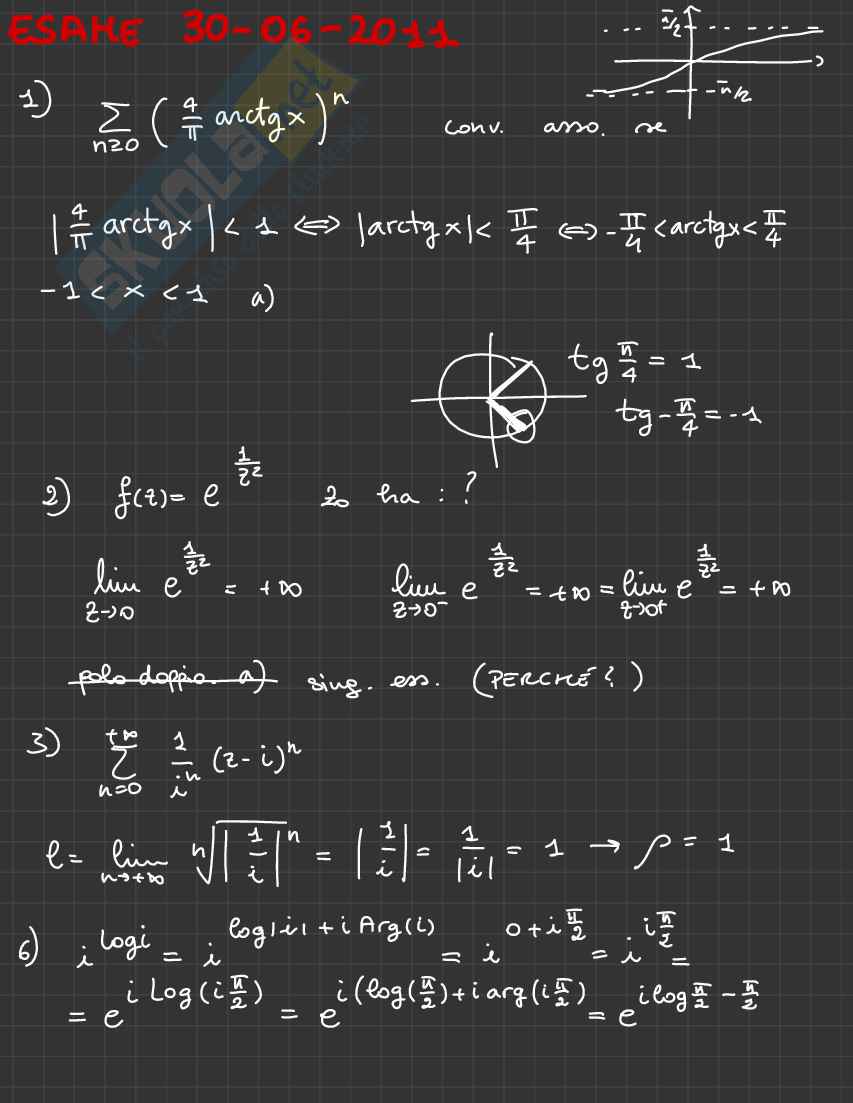 ESAME 30-06-2011
π/2
-π/2
1) Σ n≥0 (4/π arctgx)^n conv. asso. se
|4/π arctgx| < 1 ⟺ |arctgx| < π/4 ⟺ -π/4 < arctgx < π/4
-1 < x < 1 a)
tg π/4 = 1
tg -π/4 = -1
2) f(z) = e^(1/z²) z₀ ha : ?
lim z→0 e^(1/z²) = +∞ lim z→0⁻ e^(1/z²) = +∞ = lim z→0⁺ e^(1/z²) = +∞
polo doppio. a) sing. ess. (PERCHÉ?)
3) Σ n=0 +∞ 1/i^n (z-i)^n
l = lim n→+∞ ⁿ√|1/i|^n = |1/i| = 1/|i| = 1 → ρ = 1
6) i^(Logi) = i^(log|i| + i Arg(i)) = i^(0+i π/2) = i^(i π/2) =
= e^(i Log(i π/2)) = e^(i(log(π/2)+i arg(i π/2)) = e^(i log π/2 - π/2)
SKUOLA.net